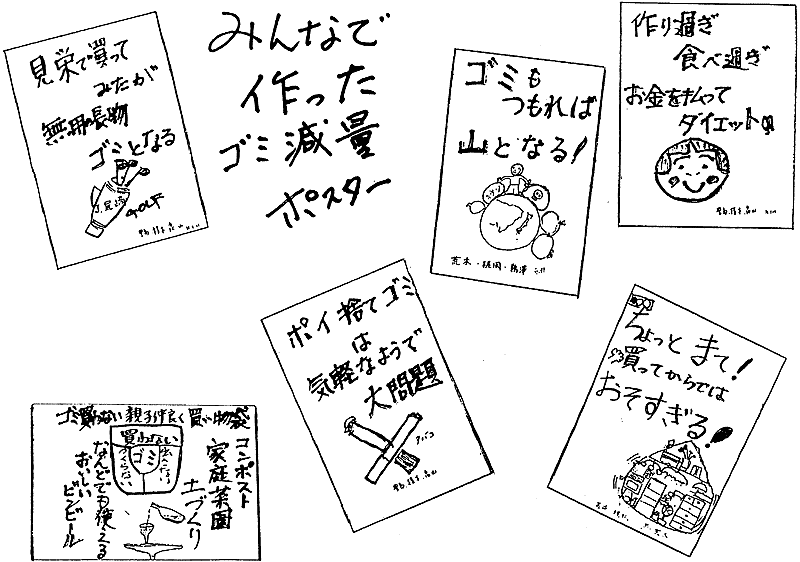 みんなで
作った
ゴミ減量
ポスター
見栄で買って
みたが
無用の長物
ゴミとなる
GOLF
ゴミも
つもれば
山となる!
作り過ぎ
食べ過ぎ
お金を払って
ダイエット
ポイ捨てゴミ
は
気軽なようで
大問題
タバコ
ちょっと まて!
買ってからでは
おそすぎる!
ゴミ買わない親子仲良く買い物袋
買わない
ゴミ
コンポスト
家庭菜園
土づくり
なんどでも使える
おいしい
ビンビール